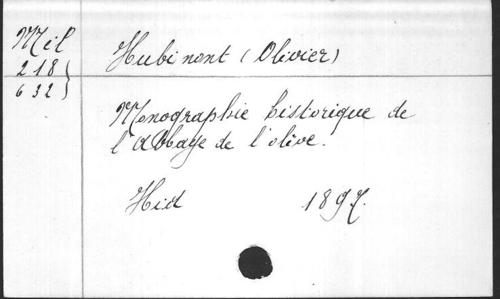 Mél
218}
632}
Hubinont (Olivier)
Monographie historique de
l'Abbaye de l'olive.
Hid 1897.